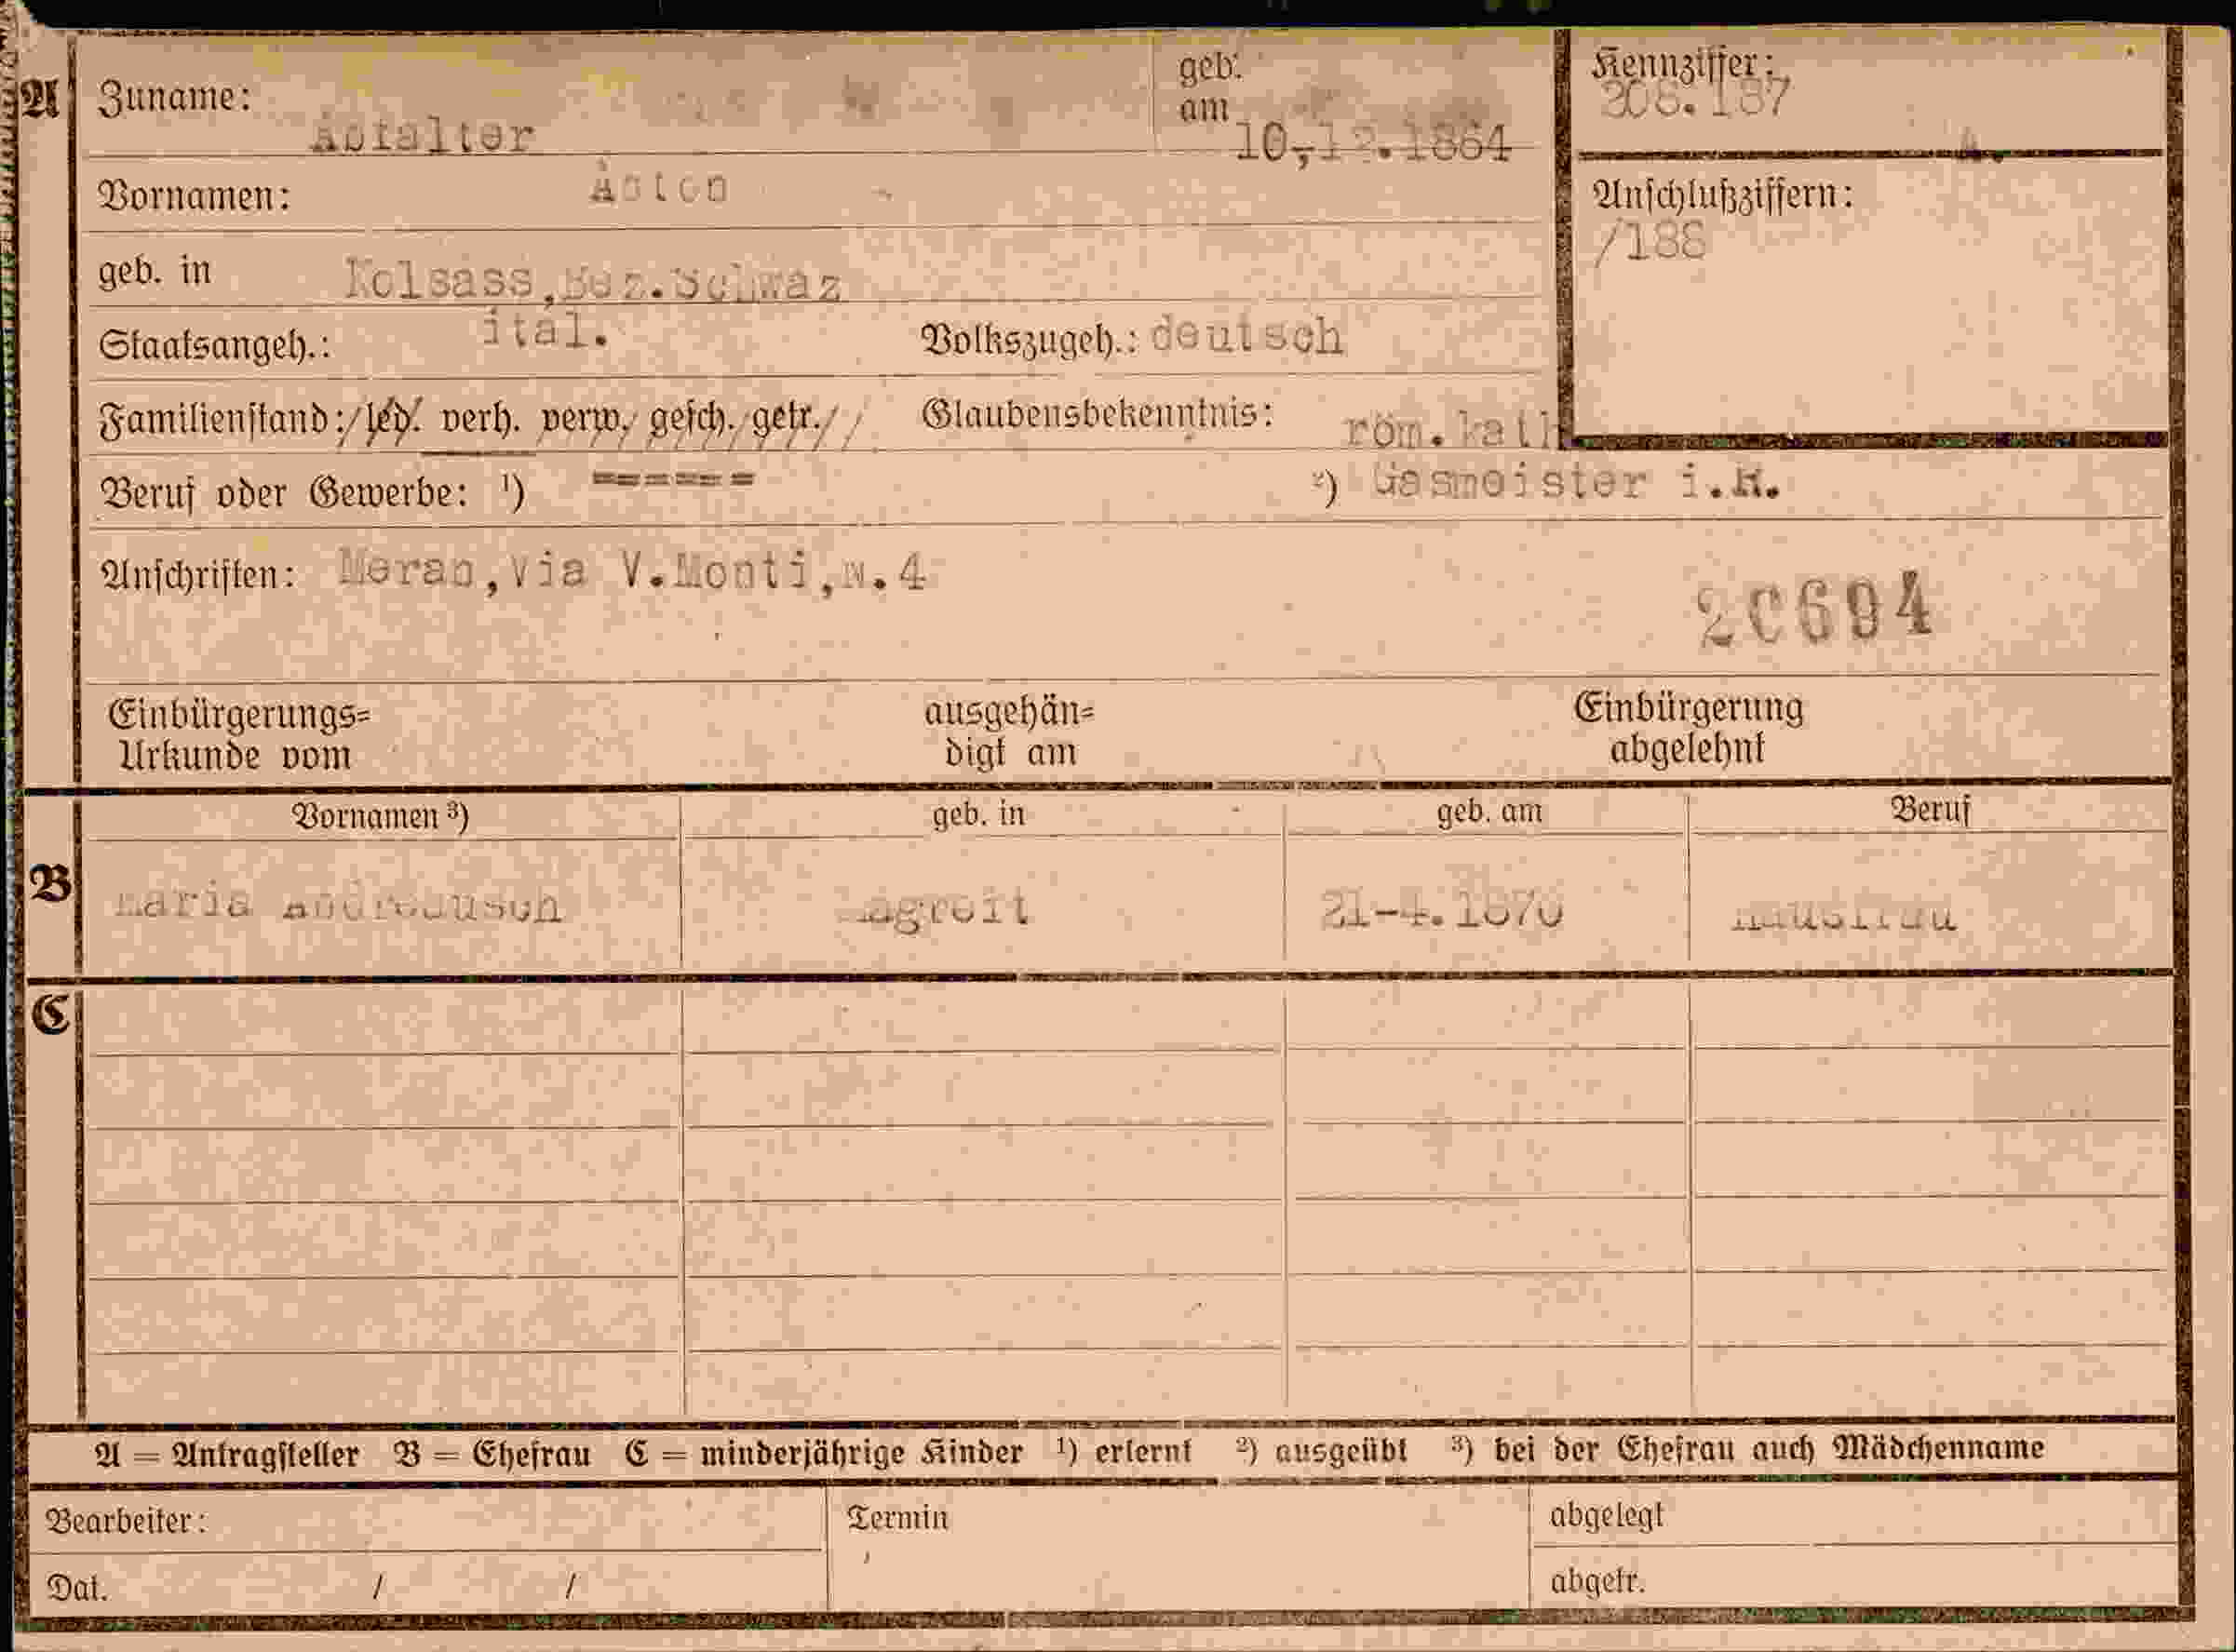 A Zuname: geb. am 10.12.1864 Kennziffer: 206.187
Vornamen: Anton Anschlußziffern: /188
geb. in Kolsass, Bez. Schwaz
Staatsangeh.: ital. Volkszugeh.: deutsch
Familienstand: led. verh. verw. gesch. getr. Glaubensbekenntnis: röm.kath
Beruf oder Gewerbe: ¹) ====== ²) Gasmeister i.R.
Anschriften: Meran, Via V.Monti, N.4
20694
Einbürgerungs= Urkunde vom ausgehän= digt am Einbürgerung abgelehnt
Vornamen ³) geb. in geb. am Beruf
B Maria 21-4.1870 Hausfrau
C
A = Antragsteller B = Ehefrau C = minderjährige Kinder ¹) erlernt ²) ausgeübt ³) bei der Ehefrau auch Mädchenname
Bearbeiter: Termin abgelegt
Dat. / / abgetr.